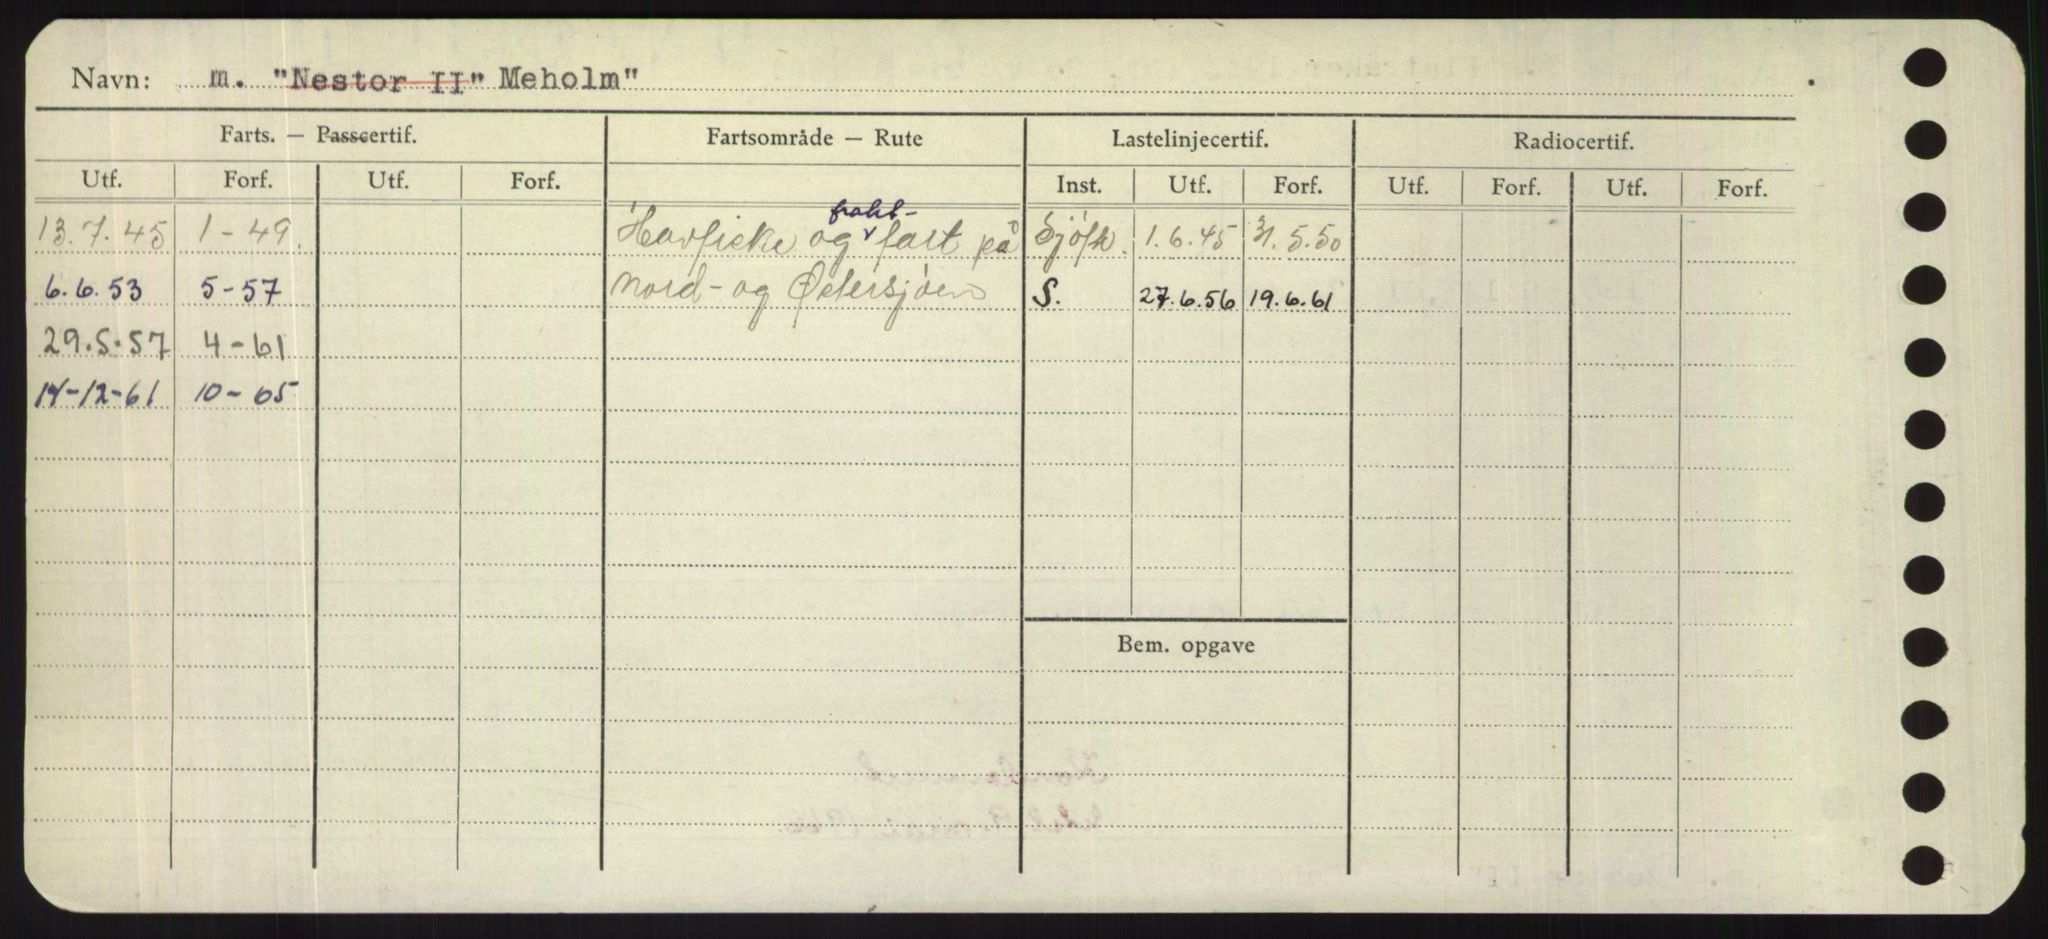 Navn: m. "Nestor II" Meholm"
Farts. — Passcertif. Fartsområde — Rute Lastelinjecertif. Radiocertif.
Utf. Forf. Utf. Forf. Inst. Utf. Forf. Utf. Forf. Utf. Forf.
frakt-
13.7.45 1-49. Havfiske og fart på Sjöfk. 1.6.45 31.5.50
6.6.53 5-57 Nord- og Østersjøen S. 27.6.56 19.6.61
29.5.57 4-61
14-12-61 10-65
Bem. opgave